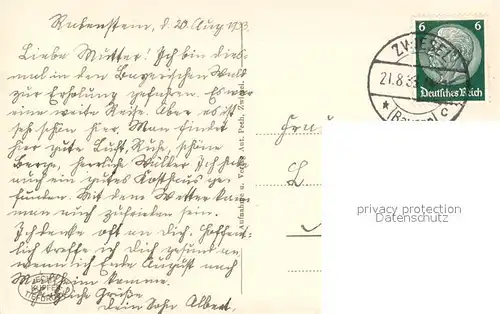 Rabenstein, d. 20. Aug. 1933.
Liebe Mutter! Ich bin dies-
mal in den Bayerischen Wald
zur Erholung gefahren. Es war
eine weite Reise. Aber es ist
sehr schön hier. Man findet
hier gute Luft, Ruhe, schöne
Berge, herrliche Wälder. Ich habe
auch ein gutes Kosthaus ge-
funden. Mit dem Wetter kann
man auch zufrieden sein.
Ich denke oft an dich. Hoffent-
lich treffe ich dich gesund an
wenn ich Ende August nach
M. heim komme.
Herzliche Grüße
dein Sohn Albert.
Aufnahme u. Verlag Ant. Pech, Zwiesel.
KUPFER
TIEFDRUCK
6 6
Deutsches Reich
ZWIESEL
21.8.33
(Bayern) c
Frau
L
privacy protection
Datenschutz